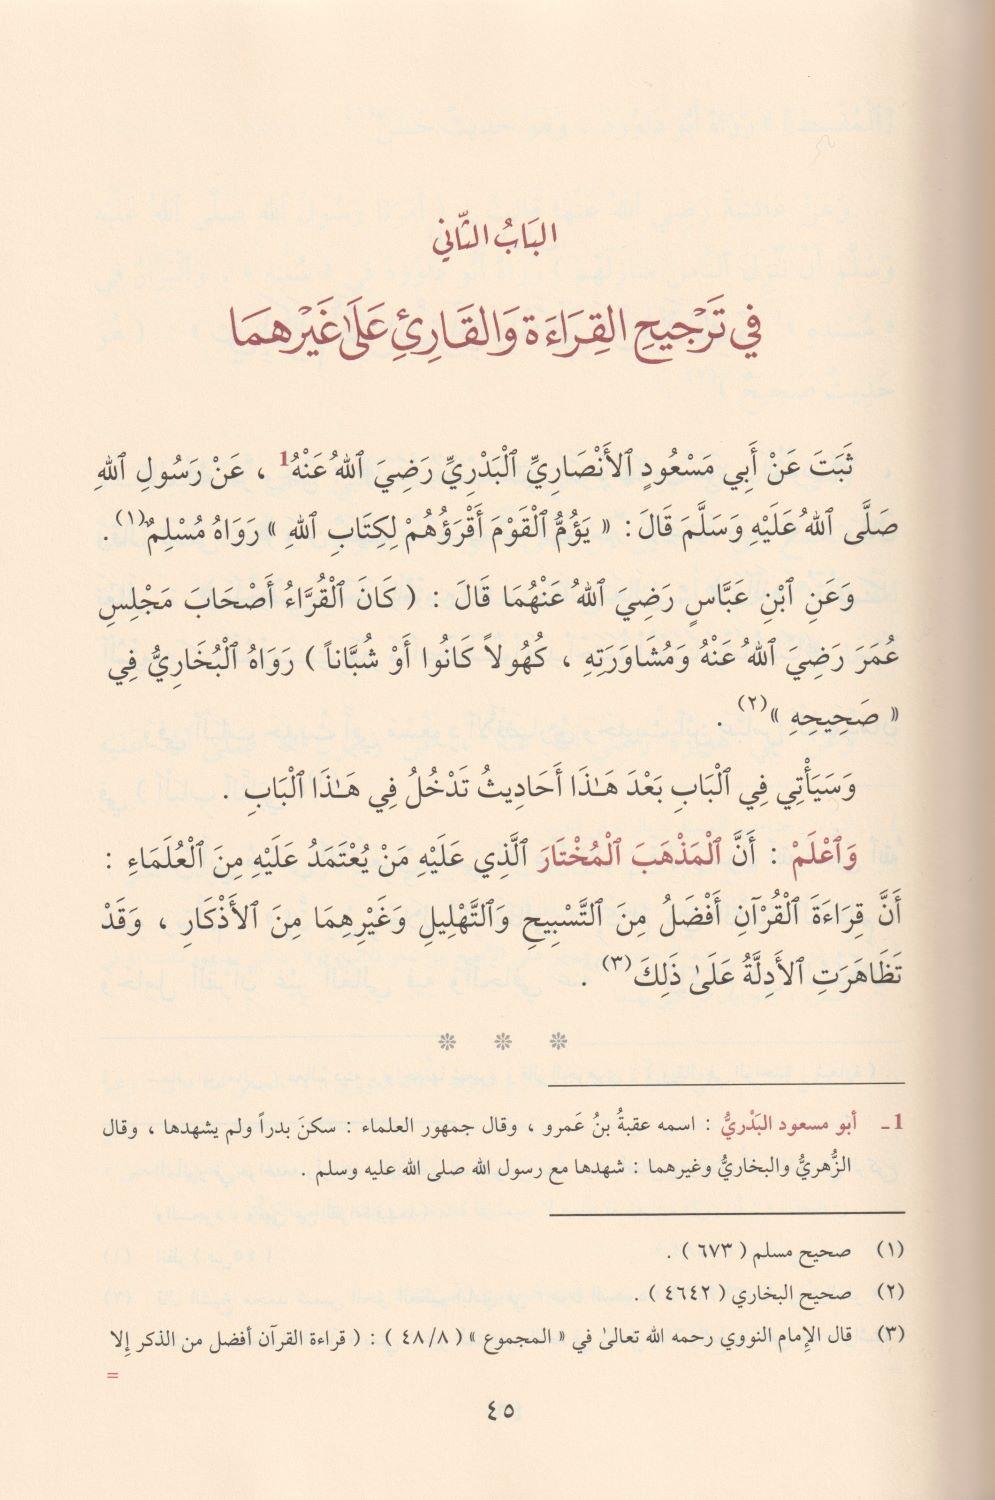 البَابُ الثَّاني
في تَرْجِيحِ القِرَاءَة وَالقَارِئِ عَلَىٰ غَيْرِهِمَا
ثَبَتَ عَنْ أَبِي مَسْعُودٍ ٱلأَنْصَارِيِّ ٱلْبَدْرِيِّ رَضِيَ ٱللهُ عَنْهُ1 ، عَنْ رَسُولِ ٱللهِ
صَلَّى ٱللهُ عَلَيْهِ وَسَلَّمَ قَالَ : « يَؤُمُّ ٱلْقَوْمَ أَقْرَؤُهُمْ لِكِتَابِ ٱللهِ » رَوَاهُ مُسْلِمٌ(١) .
وَعَنِ ٱبْنِ عَبَّاسٍ رَضِيَ ٱللهُ عَنْهُمَا قَالَ : ( كَانَ ٱلْقُرَّاءُ أَصْحَابَ مَجْلِسِ
عُمَرَ رَضِيَ ٱللهُ عَنْهُ وَمُشَاوَرَتِهِ ، كُهُولاً كَانُوا أَوْ شُبَّاناً ) رَوَاهُ ٱلْبُخَارِيُّ فِي
« صَحِيحِهِ »(٢) .
وَسَيَأْتِي فِي ٱلْبَابِ بَعْدَ هَـٰذَا أَحَادِيثُ تَدْخُلُ فِي هَـٰذَا ٱلْبَابِ .
وَٱعْلَمْ : أَنَّ ٱلْمَذْهَبَ ٱلْمُخْتَارَ ٱلَّذِي عَلَيْهِ مَنْ يُعْتَمَدُ عَلَيْهِ مِنَ ٱلْعُلَمَاءِ :
أَنَّ قِرَاءَةَ ٱلْقُرْآنِ أَفْضَلُ مِنَ ٱلتَّسْبِيحِ وَٱلتَّهْلِيلِ وَغَيْرِهِمَا مِنَ ٱلأَذْكَارِ ، وَقَدْ
تَظَاهَرَتِ ٱلأَدِلَّةُ عَلَىٰ ذَلِكَ(٣) .
1ـ أبو مسعود البَدْريُّ : اسمه عقبةُ بنُ عَمرو ، وقال جمهور العلماء : سكنَ بدراً ولم يشهدها ، وقال
الزُّهريُّ والبخاريُّ وغيرهما : شهدها مع رسول الله صلى الله عليه وسلم .
(١) صحيح مسلم ( ٦٧٣ ) .
(٢) صحيح البخاري ( ٤٦٤٢ ) .
(٣) قال الإمام النووي رحمه الله تعالىٰ في « المجموع » ( ٤٨/٨ ) : ( قراءة القرآن أفضل من الذكر إلا
=
٤٥